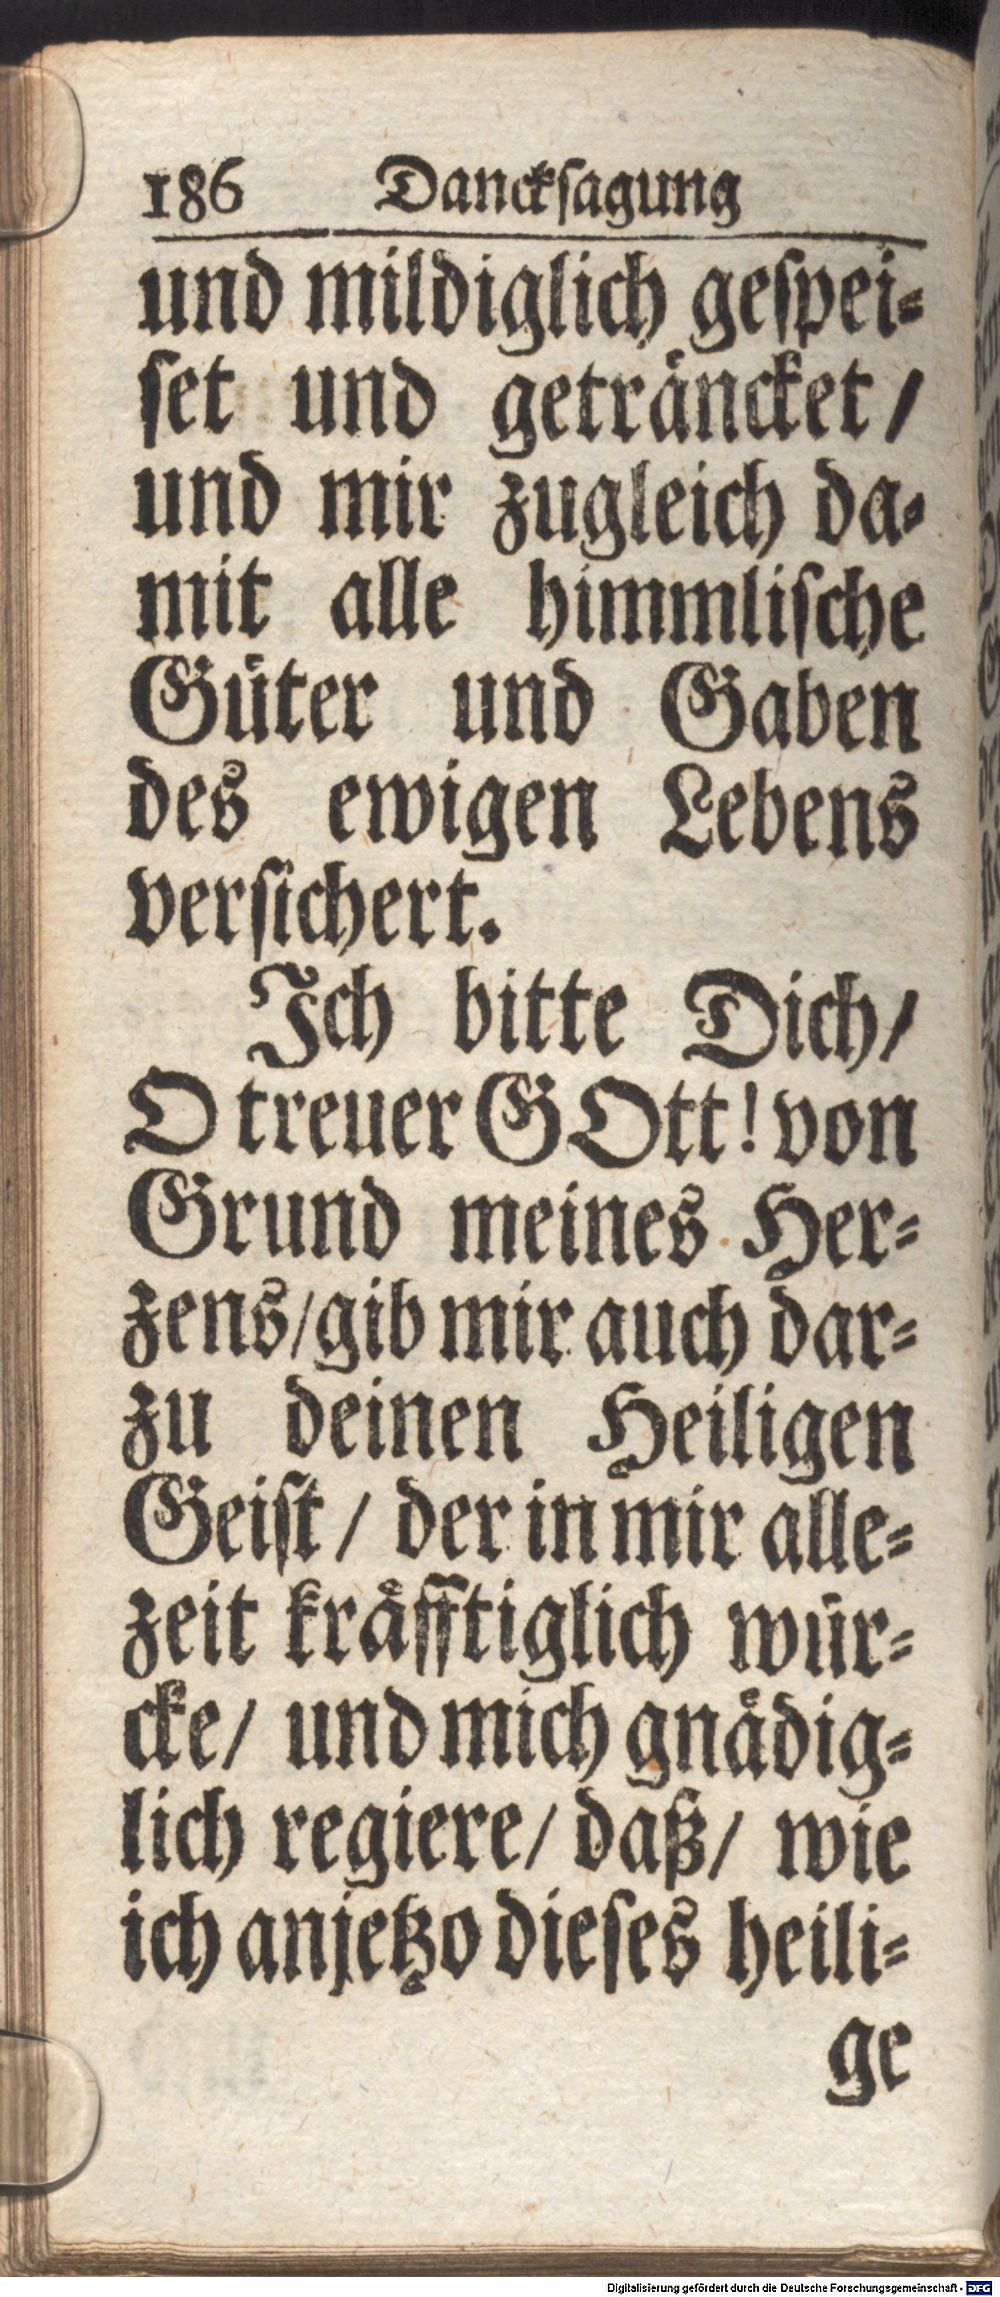 186 Danckſagung
und mildiglich geſpei⸗
ſet und getraͤncket /
und mir zugleich da⸗
mit alle himmliſche
Guͤter und Gaben
des ewigen Lebens
verſichert.
Ich bitte Dich/
O treuer GOtt! von
Grund meines Her⸗
zens/gib mir auch dar⸗
zu deinen Heiligen
Geiſt / der in mir alle⸗
zeit kraͤfftiglich wuͤr⸗
cke/ und mich gnaͤdig⸗
lich regiere/ daß/ wie
ich anjetzo dieſes heili⸗
ge
Digitalisierung gefördert durch die Deutsche Forschungsgemeinschaft - DFG